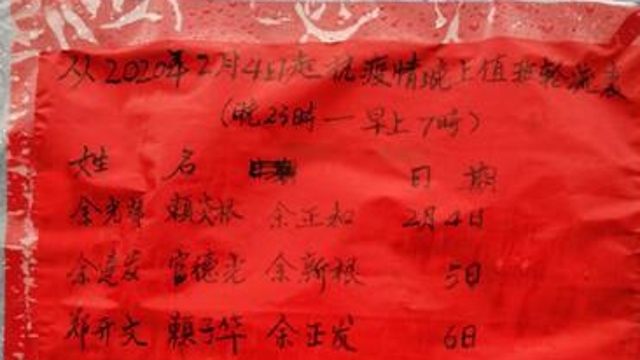 从2020年2月4日起抗疫情晚上值班轮流表
(晚23時一早上7時)
姓 名 日 期
余光 賴炎根 余正和 2月4日
余建发 官德光 余新根 5日
郑开文 賴子华 余正发 6日